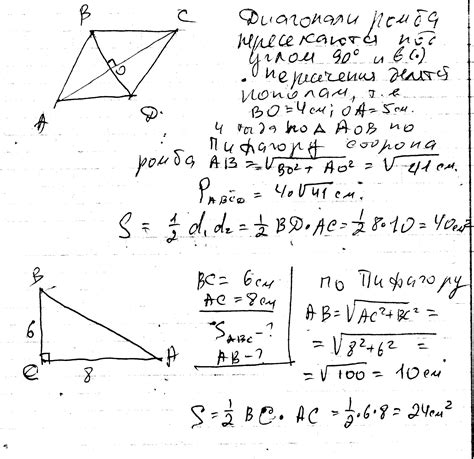 B
C
O
A
D
Диагонали ромба
пересекаются под
углом 90° и в (·)
пересечения делятся
пополам, т.е.
BO=4см; OA=5см.
из AOB по
Пифагору сторона
ромба AB=√BO²+AO² = √41 см.
P_ABCD = 4·√41 см.
S = 1/2 d₁d₂ = 1/2 BD·AC = 1/2 8·10 = 40см²
B
6
C
8
A
BC = 6см
AC = 8см
S_ABC-?
AB-?
по Пифагору
AB=√AC²+BC² =
=√8²+6² =
=√100 = 10см
S = 1/2 BC · AC = 1/2 · 6 · 8 = 24см²